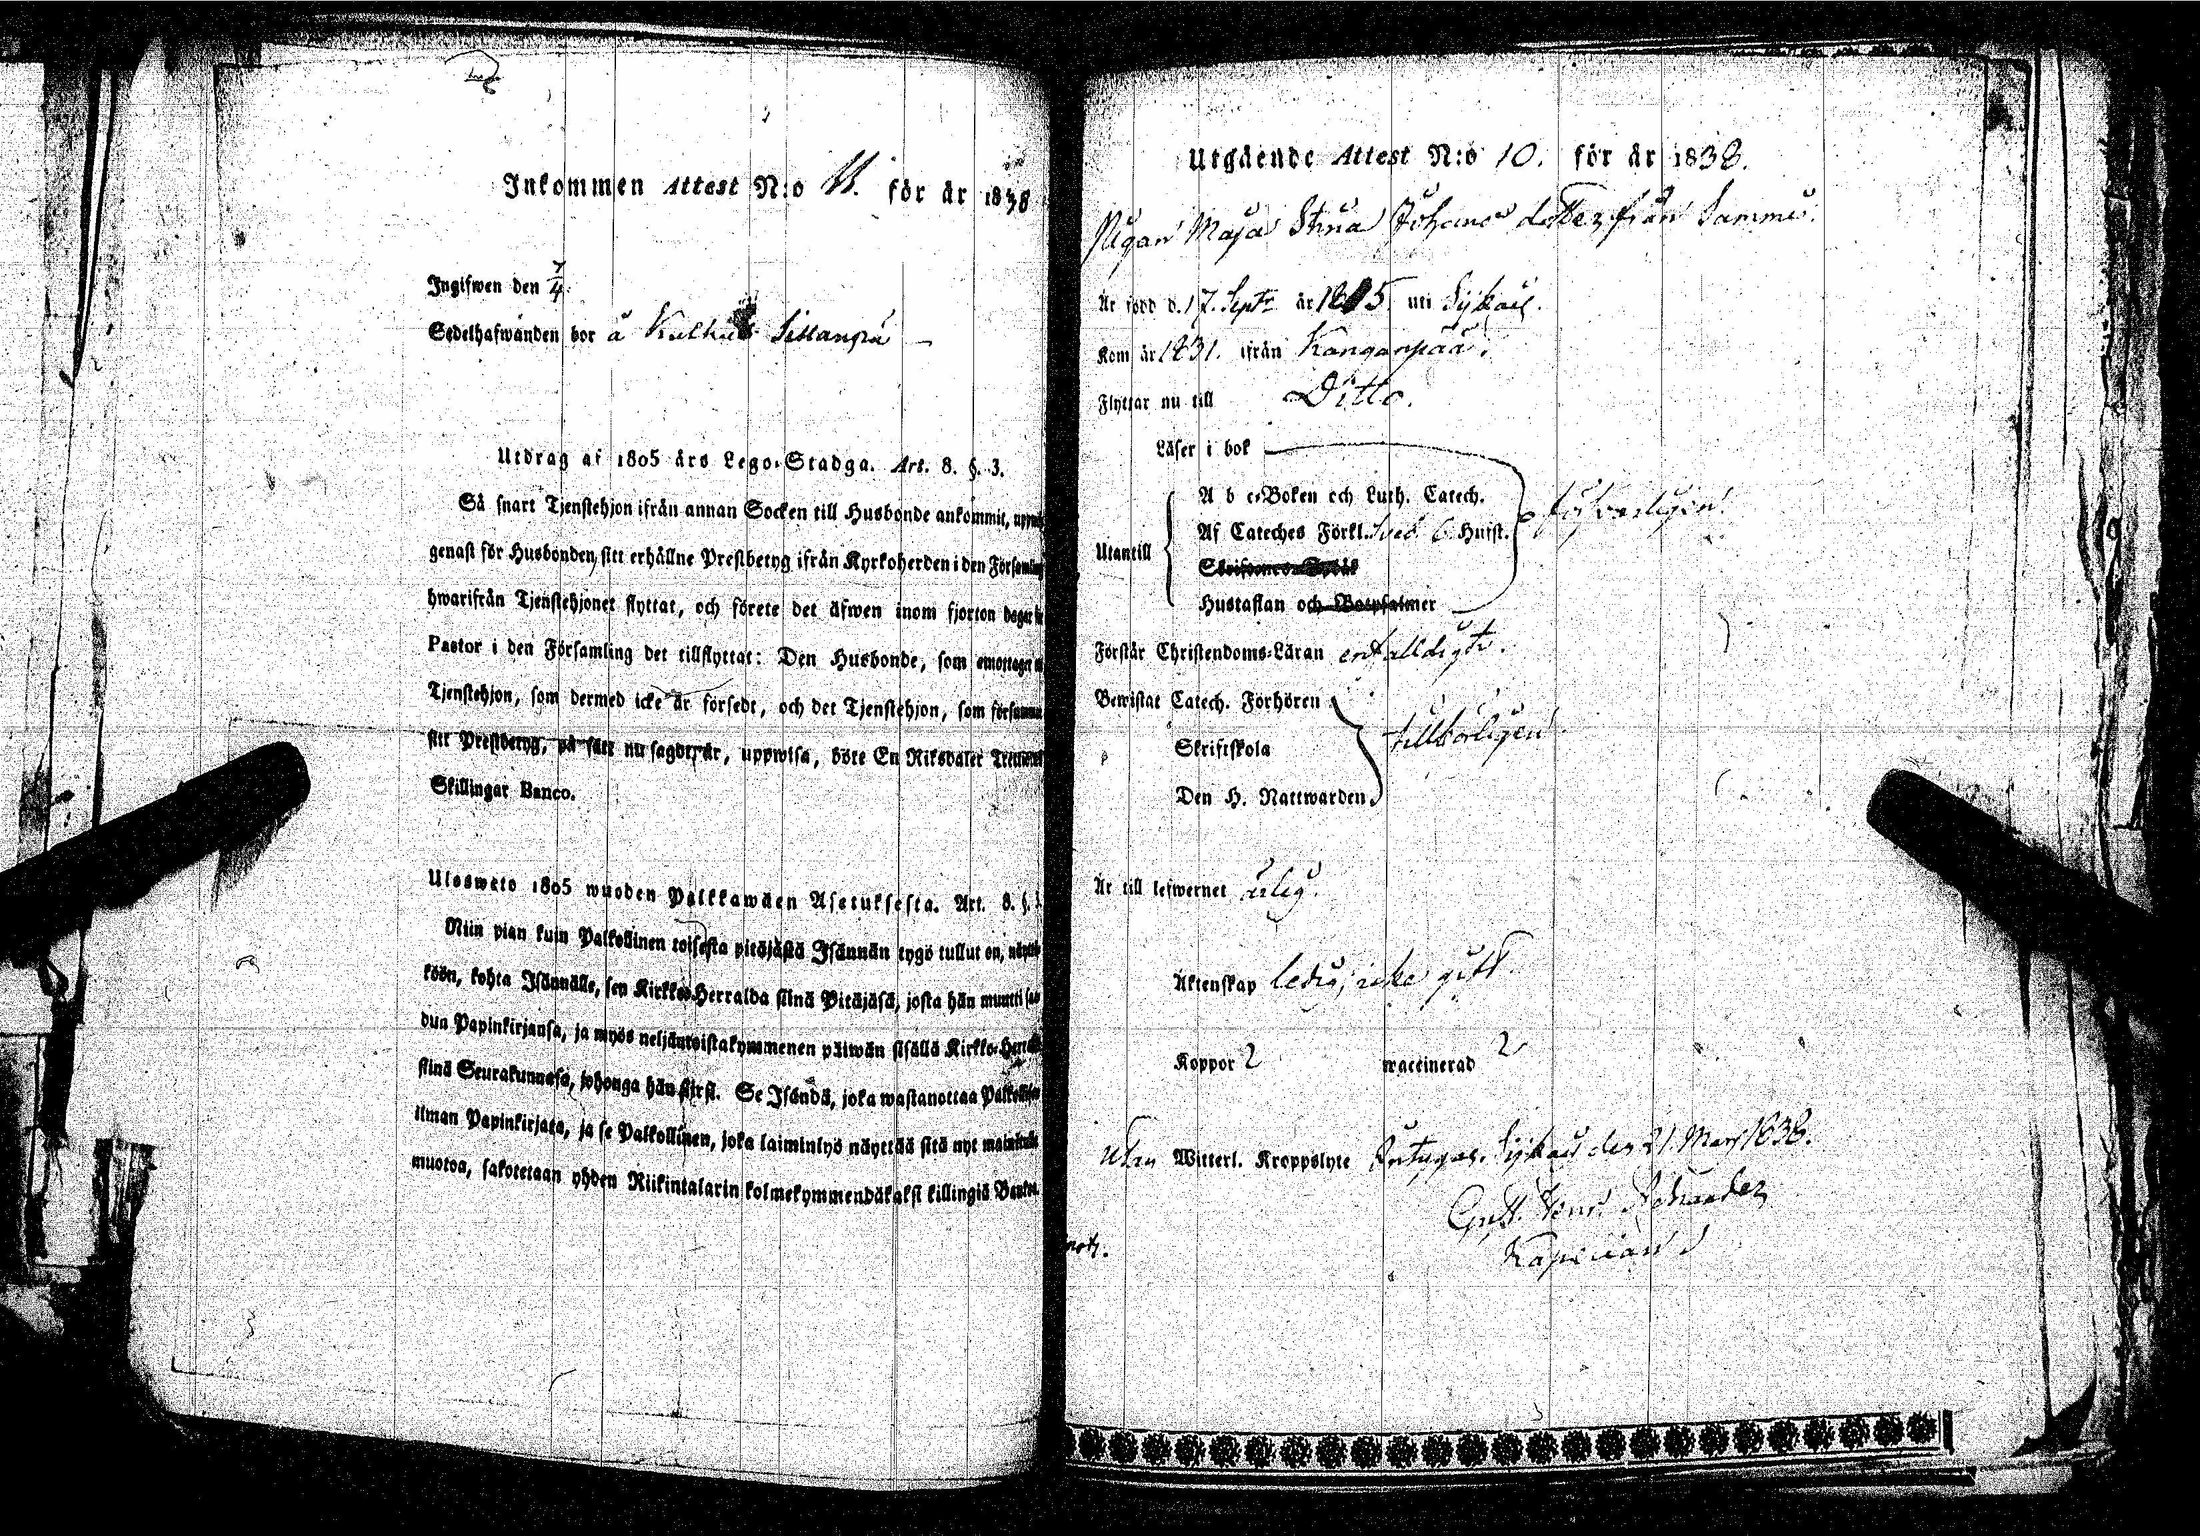 Inkommen Attest N:o 11. för år 1838
Ingifwen den 7/4.
Sedelhafwanden bor å Sillanpä
Utdrag af 1805 års Lego-Stadga. Art. 8. §. 3.
Så snart Tjenstehjon ifrån annan Socken till Husbonde ankommit,
genast för Husbonden sitt erhållne Prestbetyg ifrån Kyrkoherden i den
hwarifrån Tjenstehjonet flyttat, och förete det äfwen inom fjorton dagar
Pastor i den Församling det tillflyttat: Den Husbonde, som emottager
Tjenstehjon, som dermed icke är försedt, och det Tjenstehjon, som
sitt Prestbetyg, på sätt nu sagdt är, uppwisa, böte En Riksdaler
Skillingar Banco.
Ulosweto 1805 wuoden Palkkawäen Asetuksesta. Art. 8. §. 3.
Niin pian kuin Palkollinen toisesta pitäjästä Isännän tygö tullut on,
köön, kohta Isännälle, sen Kirkko-Herralda siinä Pitäjäsä, josta hän muutti
dun Papinkirjansa, ja myös neljäntoistakymmenen päiwän sisällä Kirkko-
siinä Seurakunnasa, johonga hän siirsi. Se Isändä, joka wastanottaa
ilman Papinkirjata, ja se Palkollinen, joka laiminlyö näyttää sitä nyt
muotoa, sakotetaan yhden Riikintalarin kolmekymmendäkaksi killingiä
Utgående Attest N:o 10. för år 1838.
Pigan Maja Stina Johans dotter från Sammi.
Är född d. 17. Septr år 1815. uti Sykais.
Kom år 1831. ifrån Kanganpää.
Flyttar nu till Ditto.
Läser i bok
A b c-Boken och Luth. Catech.
Af Cateches Förkl. Sveb. 6. Hufst.
Utantill
Hustaflan och Botpsalmer
Förstår Christendoms-Läran enfalldigt.
Bewistat Catech. Förhören
Skriftskola
tillbörligen
Den H. Nattwarden
Är till lefwernet ärlig.
Äktenskap ledig, icke gift
Koppor 2 waccinerad 2
utan Witterl. Kroppslyte Intygar. Sykais den 21. Mars 1838.
Gust. Henr.
Kapellan